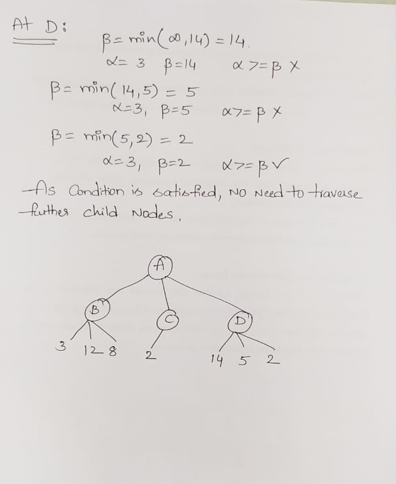 At D:
β = min(∞, 14) = 14.
α = 3 β = 14 α >= β X
β = min(14, 5) = 5
α = 3, β = 5 α >= β X
β = min(5, 2) = 2
α = 3, β = 2 α >= β ✓
- As Condition is satisfied, No need to traverse
further child Nodes.
A
B C D
3 12 8 2 14 5 2